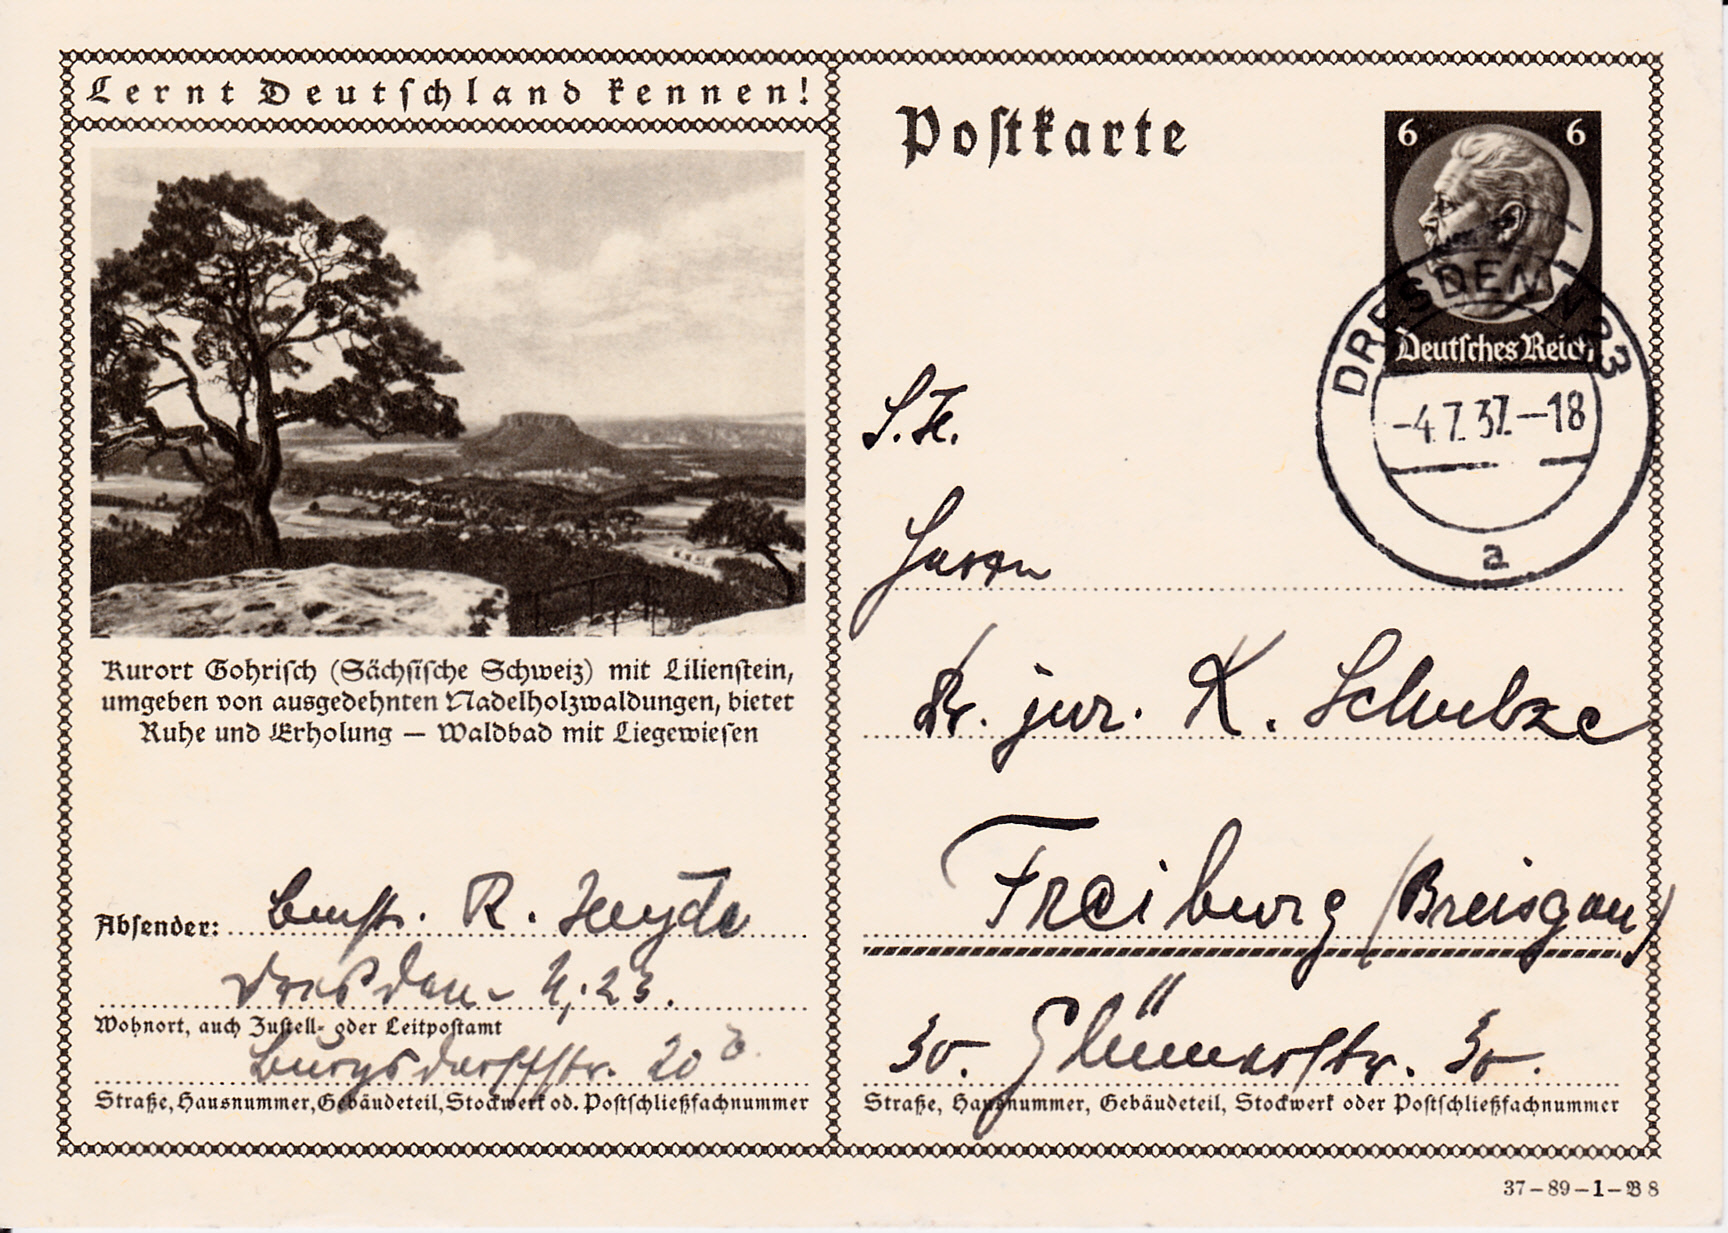 Lernt Deutschland kennen!
Kurort Gohrisch (Sächsische Schweiz) mit Lilienstein,
umgeben von ausgedehnten Nadelholzwaldungen, bietet
Ruhe und Erholung – Waldbad mit Liegewiesen
Absender: R. Heyde
Dresden - N. 23.
Wohnort, auch Zustell- oder Leitpostamt
Burgsdorffstr. 20
Straße, Hausnummer, Gebäudeteil, Stockwerk od. Postschließfachnummer
Postkarte
6 6
Deutsches Reich
DRESDEN N 23
-4.7.37.-18
a
Herrn
Dr. jur. K. Schulze
Freiburg (Breisgau)
30. Glümerstr. 30.
Straße, Hausnummer, Gebäudeteil, Stockwerk oder Postschließfachnummer
37-89-1-B 8